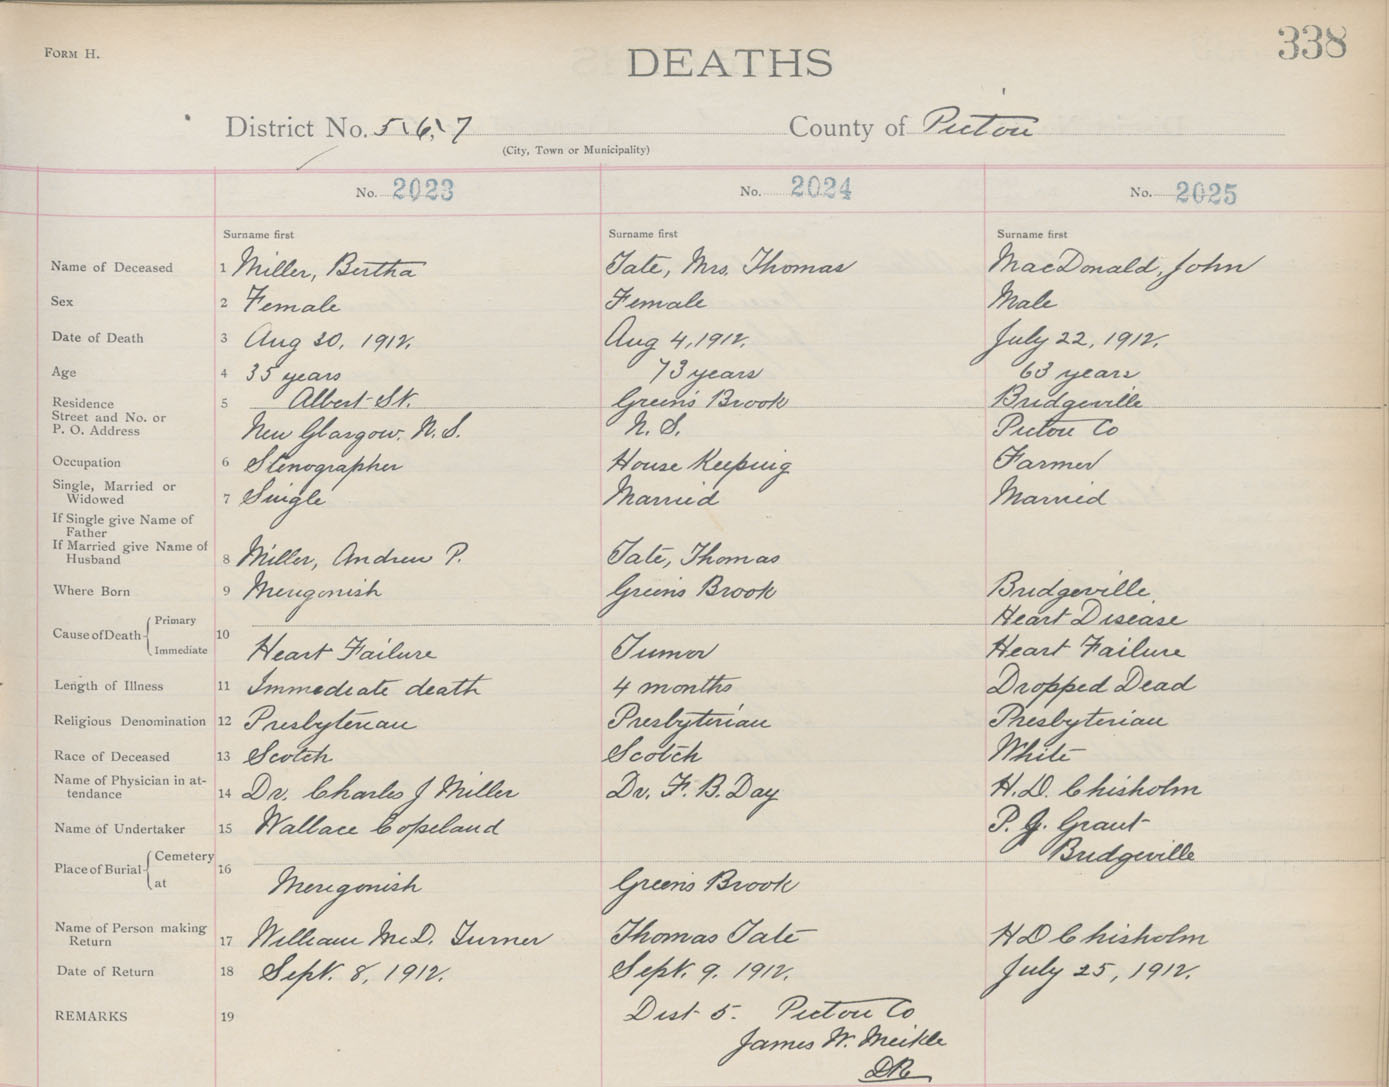 Form H.
DEATHS
338
District No. 5, 6, 7 County of Pictou
(City, Town or Municipality)
No. 2023 No. 2024 No. 2025
Surname first Surname first Surname first
Name of Deceased 1 Miller, Bertha Tate, Mrs. Thomas MacDonald, John
Sex 2 Female Female Male
Date of Death 3 Aug 30, 1912. Aug 4, 1912. July 22, 1912.
Age 4 35 years 73 years 63 years
Residence 5 Albert St. Greens Brook Bridgeville
Street and No. or
P. O. Address New Glasgow. N.S. N.S. Pictou Co
Occupation 6 Stenographer House Keeping Farmer
Single, Married or
Widowed 7 Single Married Married
If Single give Name of
Father
If Married give Name of
Husband 8 Miller, Andrew P. Tate, Thomas
Where Born 9 Merigonish Greens Brook Bridgeville
Cause of Death Primary 10 Heart Disease
Immediate Heart Failure Tumor Heart Failure
Length of Illness 11 Immediate death 4 months Dropped Dead
Religious Denomination 12 Presbyterian Presbyterian Presbyterian
Race of Deceased 13 Scotch Scotch White
Name of Physician in at-
tendance 14 Dr. Charles J Miller Dr. F. B. Day H.D. Chisholm
Name of Undertaker 15 Wallace Copeland P. J. Grant
Place of Burial Cemetery 16 Bridgeville
at Merigonish Greens Brook
Name of Person making
Return 17 William McD. Turner Thomas Tate H D Chisholm
Date of Return 18 Sept. 8, 1912. Sept. 9. 1912. July 25, 1912.
REMARKS 19 Dist 5. Pictou Co
James W. Meikle
DR